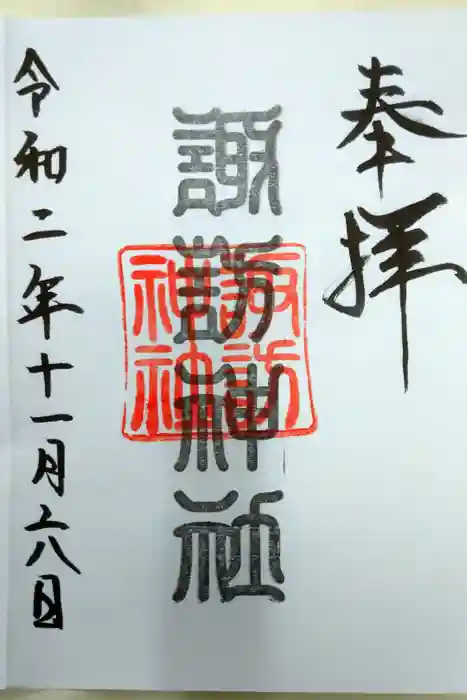 奉拝
諏訪神社
諏訪
神社
令和二年十一月六日